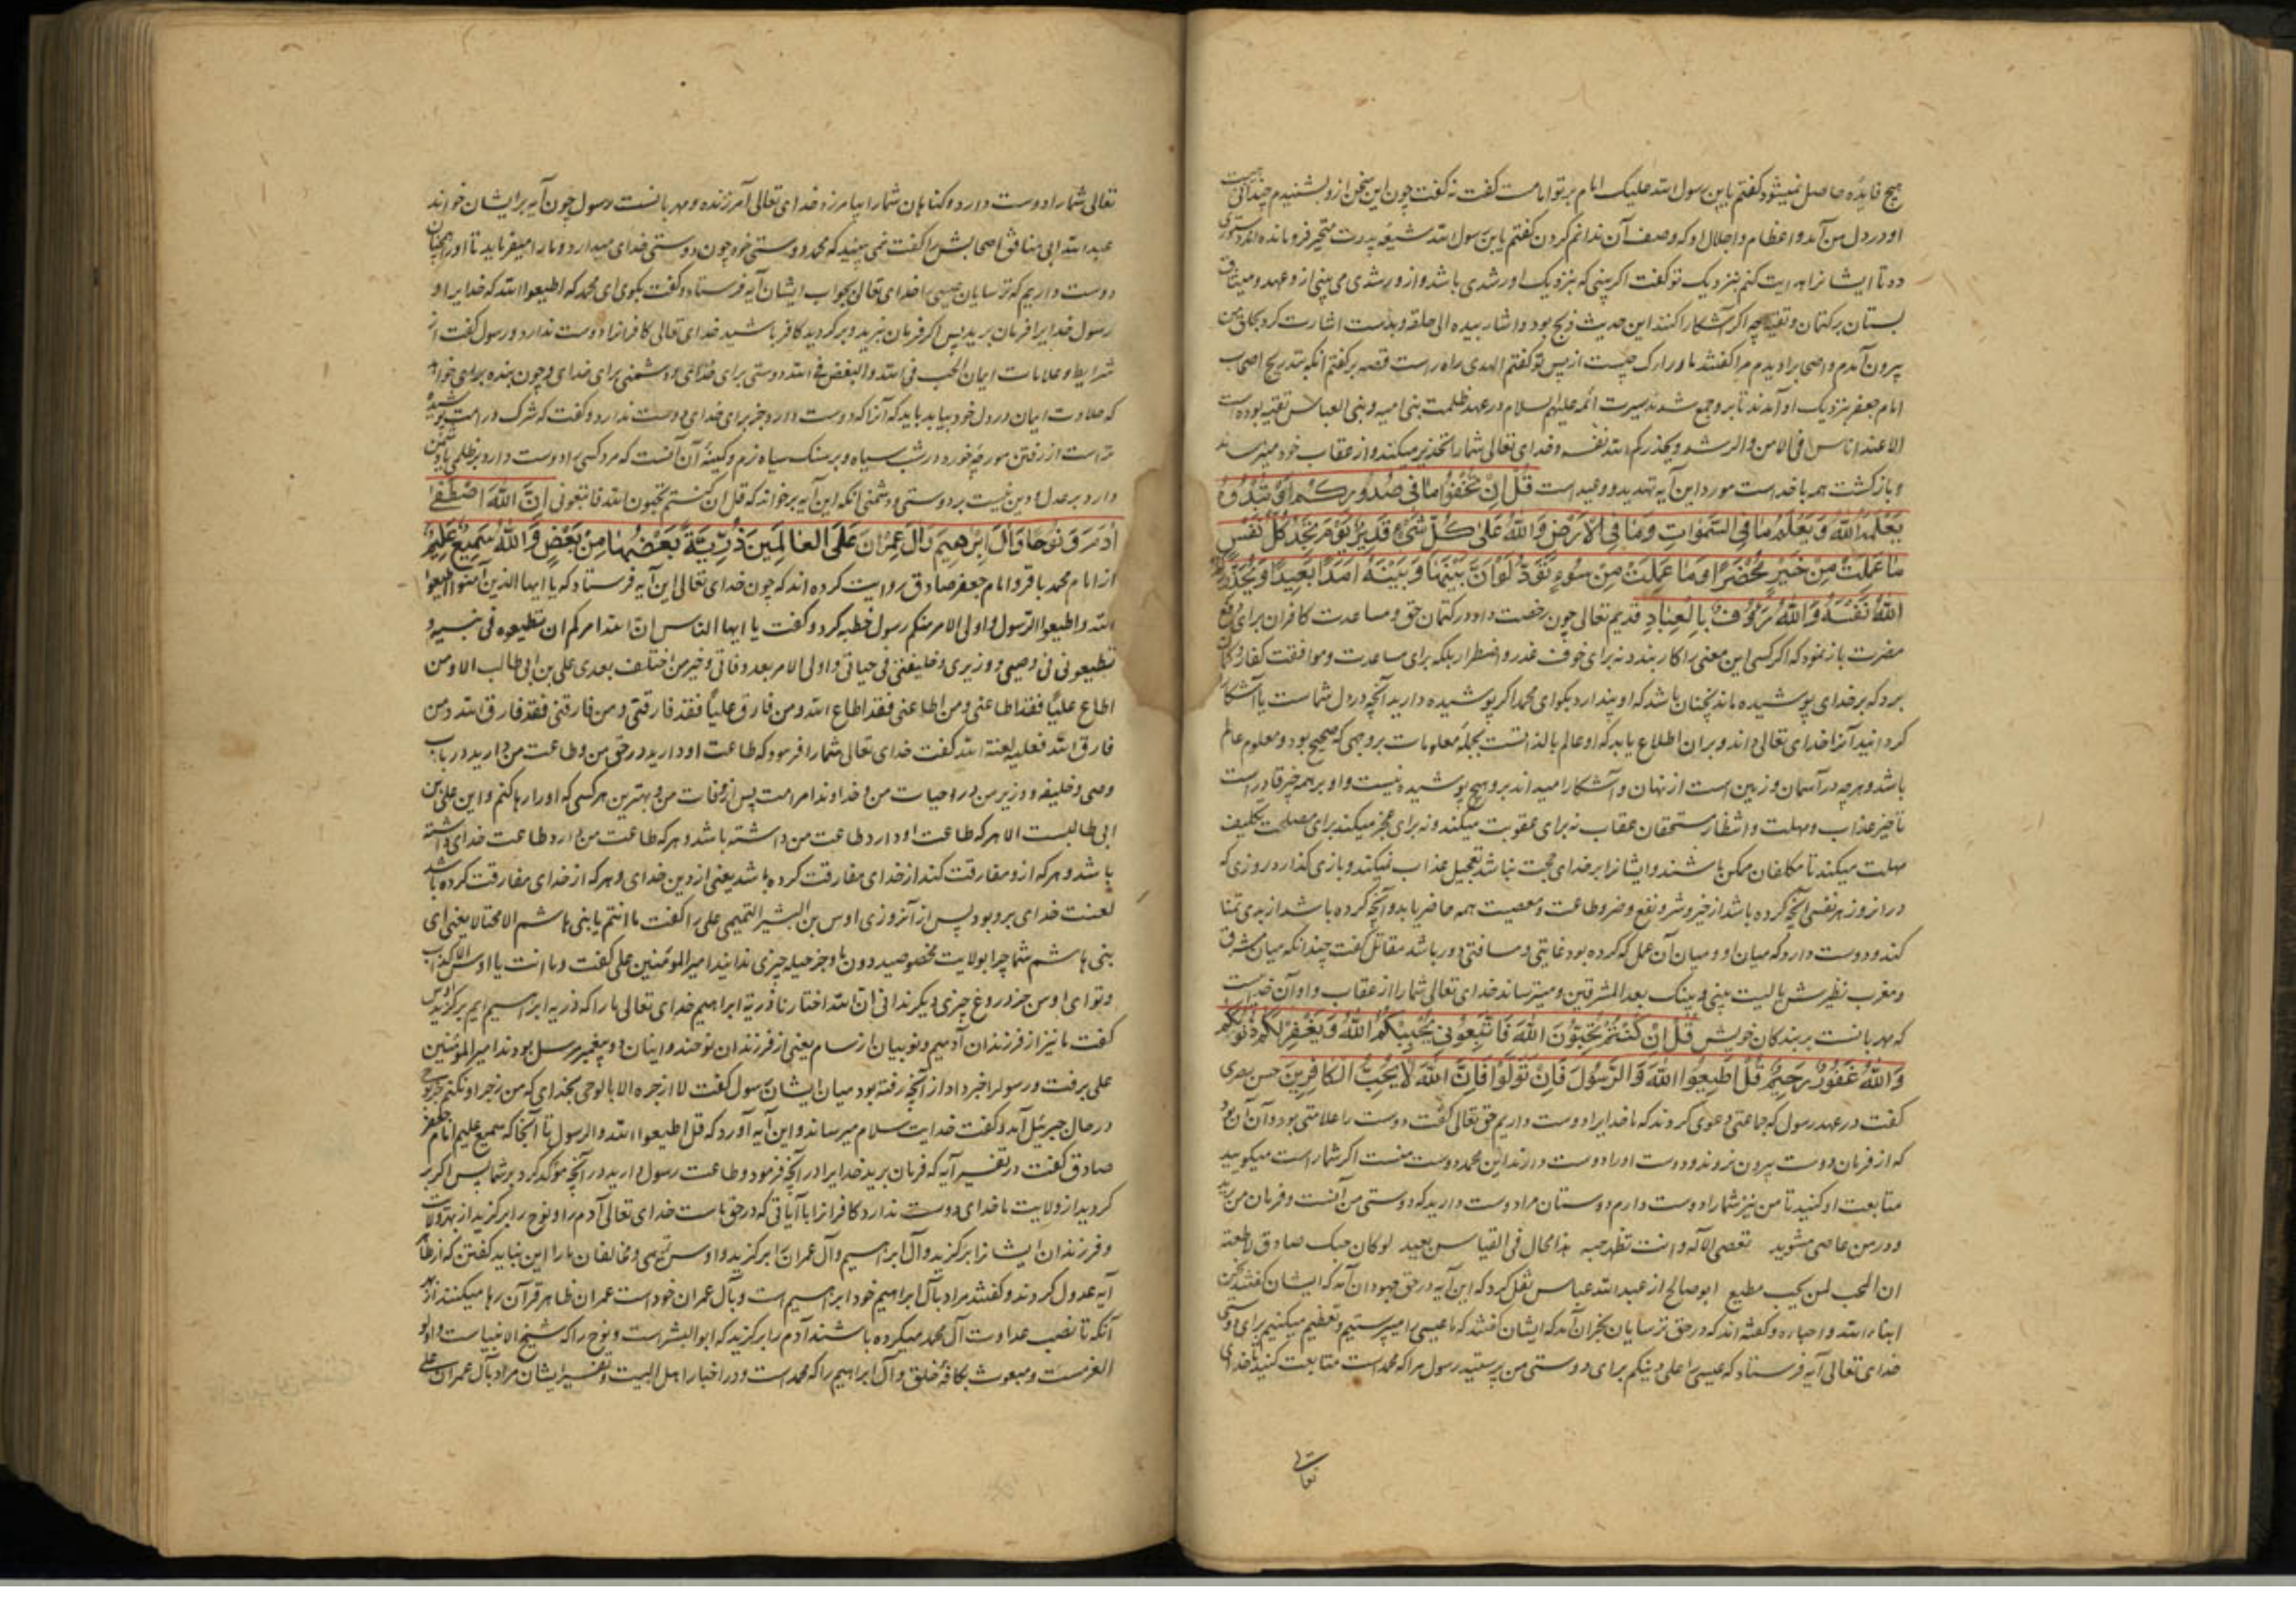 هیچ فایده حاصل نمیشود کفتم یابن رسول الله علیک امام بر تو امامت کفت نه کفت چون این سخن ازو بشنیدم چندان هیبت
او در دل من آمد و اعظام و اجلال او که وصف آن ندانم کردن کفتم یابن رسول الله شیعه پدرت متحیر فرو مانده اند دستوری
ده تا ایشانرا هدایت کنم بنزدیک تو کفت اکر بینی که بنزدیک او رشدی باشد و ازو رشدی می بینی ازو عهد و میثاق
بستان بر کتمان و تقیه چه اکر آشکارا کنند این حدیث ذبح بود و اشار بیده الی حلقه و بدست اشارت کرد بحلق من
بیرون آمدم و اصحاب را دیدم مرا کفتند ما وراک چیست از پس تو کفتم الهدی راه راست قصه بر کفتم آنکه بتدریج اصحاب
امام جعفر بنزدیک او آمدند تا برو جمع شدند سیرت ائمه علیهم السلام در عهد ظلمت بنی امیه و بنی العباس تقیه بوده است
الا عند اناس فی الامن والرشد و یحذرکم الله نفسه و خدای تعالی شما را تحذیر میکند و از عقاب خود میترساند
و بازکشت همه با خداست مورد این آیه تهدید و وعید است قُلْ اِنْ تُخْفُوا مَا فِی صُدُورِکُمْ اَوْ تُبْدُوهُ
یَعْلَمْهُ اللهُ وَ یَعْلَمُ مَا فِی السَّمٰوَاتِ وَمَا فِی الْاَرْضِ وَاللهُ عَلٰی کُلِّ شَیْءٍ قَدِیرٌ یَوْمَ تَجِدُ کُلُّ نَفْسٍ
مَا عَمِلَتْ مِنْ خَیْرٍ مُحْضَرًا وَمَا عَمِلَتْ مِنْ سُوءٍ تَوَدُّ لَوْ اَنَّ بَیْنَهَا وَ بَیْنَهُ اَمَدًا بَعِیدًا وَیُحَذِّرُکُمُ
اللهُ نَفْسَهُ وَاللهُ رَؤُفٌ بِالْعِبَادِ قدیم تعالی چون رخصت داد در کتمان حق و مساعدت کافران برای دفع
مضرت باز نمود که اکر کسی این معنی را کار بندد نه برای خوف عذر و اضطرار بلکه برای مساعدت و موافقت کفار و کمان
برد که بر خدای پوشیده ماند نچنان باشد که او پندارد بکو ای محمد اکر پوشیده دارید آنچه در دل شماست یا آشکارا
کردانید آنرا خدای تعالی داند و بران اطلاع یابد که او عالم بالذاتست بجمله معلومات بر وجهی که صحیح بود و معلوم عالم
باشد و هر چه در آسمان و زمین است از نهان و آشکارا میداند برو هیچ پوشیده نیست و او بر همه چیز قادر است
تاخیر عذاب و مهلت و انتظار مستحقان عقاب نه برای عقوبت میکند و نه برای عجز میکند برای مصلحت تکلیف
مهلت میکند تا مکلفان ممکن باشند و ایشانرا بر خدای حجت نباشد تعجیل عذاب نمیکند و بازی کذارد روزی که
در آنروز هر نفسی آنچه کرده باشد از خیر و شر و نفع و ضر و طاعت و معصیت همه حاضر یابد و آنچه کرده باشد از بدی تمنا
کند و دوست دارد که میان او و میان آن عمل که کرده بود غایتی و مسافتی دور باشد مقاتل کفت چندانکه میان مشرق
و مغرب نظیرش یا لیت بینی و بینک بعد المشرقین و میترساند خدای تعالی شما را از عقاب و او آن خدایست
که مهربانست بر بندکان خویش قُلْ اِنْ کُنْتُمْ تُحِبُّونَ اللهَ فَاتَّبِعُونِی یُحْبِبْکُمُ اللهُ وَ یَغْفِرْ لَکُمْ ذُنُوبَکُمْ
وَاللهُ غَفُورٌ رَحِیمٌ قُلْ اَطِیعُوا اللهَ وَالرَّسُولَ فَاِنْ تَوَلَّوْا فَاِنَّ اللهَ لَا یُحِبُّ الْکَافِرِینَ حسن بصری
کفت در عهد رسول که جماعتی دعوی کردند که ما خدایرا دوست داریم حق تعالی کفت دوست را علامتی بود و آن آن بود
که از فرمان دوست بیرون نروند و دوست او را دوست دارند این محمد دوست منست اکر شما راست میکویید
متابعت او کنید تا من نیز شما را دوست دارم دوستان مرا دوست دارید که دوستی من آنست و فرمان من برید
و در من عاصی مشوید تعصی الاله و انت تظهر حبه هذا محال فی القیاس بعید لو کان حبک صادقا لاطعته
ان المحب لمن یحب مطیع ابو صالح از عبدالله عباس نقل کرد که این آیه در حق جهودان آمد که ایشان کفتند نحن
ابناء الله و احباؤه و کفته اند که در حق ترسایان نجران آمد که ایشان کفتند که ما عیسی را میپرستیم و تعظیم میکنیم برای دوستی
خدای تعالی آیه فرستاد که عیسی را علی دینکم برای دوستی من پرستید رسول مرا که محمد است متابعت کنید تا خدای
تعالی
تعالی شما را دوست دارد و کناهان شما را بیامرزد خدای تعالی آمرزنده و مهربانست رسول چون آیه بر ایشان خواند
عبدالله ابی منافق اصحابش را کفت نمی بینید که محمد دوستی خود چون دوستی خدای میدارد و ما را میفرماید تا او را همچنان
دوست داریم که ترسایان عیسی را خدای تعالی بجواب ایشان آیه فرستاد و کفت بکوی ای محمد که اطیعوا الله که خدایرا و
رسول خدایرا فرمان برید پس اکر فرمان نبرید و برکردید کافر باشید خدای تعالی کافرانرا دوست ندارد و رسول کفت از
شرایط و علامات ایمان الحب فی الله والبغض فی الله دوستی برای خدای و دشمنی برای خدای و چون بنده برای خواهد
که حلاوت ایمان در دل خود بیابد باید که آنرا که دوست دارد جز برای خدای دوست ندارد و کفت که شرک در امت پوشیده
تر است از رفتن مورچه خورد در شب سیاه و بر سنک سیاه نرم و کمینه آن آنست که مرد کسی را دوست دارد بر ظلمی یا دشمن
دارد بر عدل و دین نیست بر دوستی و دشمنی آنکه این آیه بر خواند که قل ان کنتم تحبون الله فاتبعونی اِنَّ اللهَ اصْطَفٰی
اٰدَمَ وَ نُوحًا وَاٰلَ اِبْرٰهِیمَ وَاٰلَ عِمْرَانَ عَلَی الْعَالَمِینَ ذُرِّیَّةً بَعْضُهَا مِنْ بَعْضٍ وَاللهُ سَمِیعٌ عَلِیمٌ
از امام محمد باقر و امام جعفر صادق روایت کرده اند که چون خدای تعالی این آیه فرستاد که یا ایها الذین آمنوا اطیعوا
الله و اطیعوا الرسول و اولی الامر منکم رسول خطبه کرد و کفت یا ایها الناس ان الله امرکم ان تطیعوه فی نفسه و
تطیعونی فی وصیی و وزیری و خلیفتی فی حیاتی و اولی الامر بعد وفاتی و خیر من اختلف بعدی علی بن ابی طالب الا و من
اطاع علیاً فقد اطاعنی و من اطاعنی فقد اطاع الله و من فارق علیاً فقد فارقنی و من فارقنی فقد فارق الله و من
فارق الله فعلیه لعنة الله کفت خدای تعالی شما را فرمود که طاعت او دارید در حق من و طاعت من دارید در باب
وصی و خلیفه و وزیر من در حیات من و خداوند امر امت پس از وفات من و بهترین هر کسی که او را رها کنم و این علی بن
ابی طالبست الا هر که طاعت او دارد طاعت من داشته باشد و هر که طاعت من دارد طاعت خدای داشته
باشد و هر که ازو مفارقت کند از خدای مفارقت کرده باشد یعنی از دین خدای و هر که از خدای مفارقت کرده باشد
لعنت خدای برو بود پس از آنروزی اوس بن البشر التمیمی علی را کفت ما انتم یا بنی هاشم الا محتالا یعنی ای
بنی هاشم شما چرا بولایت مخصوصید دون ما و جز حیله چیزی ندانید امیرالمؤمنین علی کفت و ما انت یا اوس الا کذاب
و تو ای اوس جز دروغ چیزی دیکر ندانی ان الله اختارنا ذریة ابراهیم خدای تعالی ما را که ذریه ابراهیم ایم برکزید اوس
کفت ما نیز از فرزندان آدمیم و نوبیان از سام یعنی از فرزندان نوحند و اینان دو پیغمبر مرسل بودند امیرالمؤمنین
علی برفت و رسولرا خبر داد از آنچه رفته بود میان ایشان رسول کفت لا ازجره الا بالوحی بخدای که من زجر او نکنم جز بوحی
در حال جبرئیل آمد و کفت خدایت سلام میرساند و این آیه آورد که قل اطیعوا الله والرسول تا آنجا که سمیع علیم امام جعفر
صادق کفت در تفسیر آیه که فرمان برید خدایرا در آنچه فرمود و طاعت رسول دارید در آنچه مؤکد کرد بر شما پس اکر بر
کردید از ولایت ما خدای دوست ندارد کافرانرا با آیاتی که در حق ماست خدای تعالی آدم را و نوح را برکزید از بهر ولایت
و فرزندان ایشانرا برکزید و آل ابراهیم و آل عمران را برکزید و اوس تمیمی و مخالفان ما را این نباید کفتن که از ظاهر
آیه عدول کردند و کفتند مراد بآل ابراهیم خود ابراهیم است و بآل عمران خود است عمران ظاهر قرآن رها میکنند از بهر
آنکه تا نصب عداوت آل محمد میکرده باشند آدم را برکزید که ابوالبشر است و نوح را که شیخ الانبیاست و اولو
العزمست و مبعوث بکافه خلق و آل ابراهیم را که محمد است و در اخبار اهل البیت و تفسیر ایشان مراد بآل عمران علی